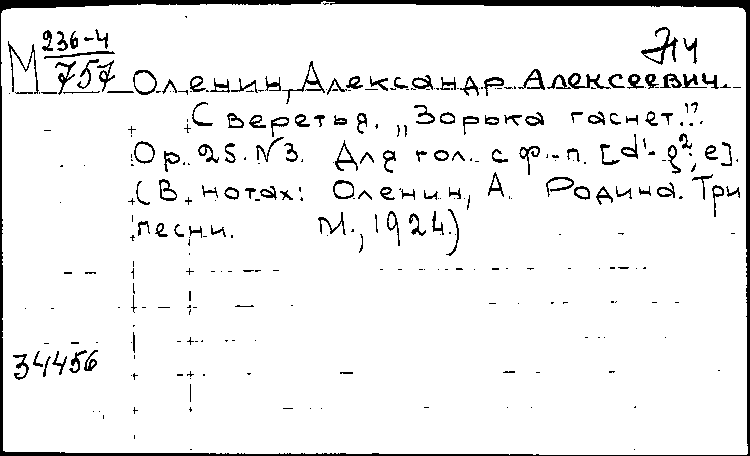 М 236-4
757
Л14
Оленин, Александр Алексеевич.
С веретья. „Зорька гаснет..."
Op. 25. N3. Для гол. с ф.-п. [d¹-g²; e].
(В нотах: Оленин, А. Родина. Три
песни. М., 1924.)
34456